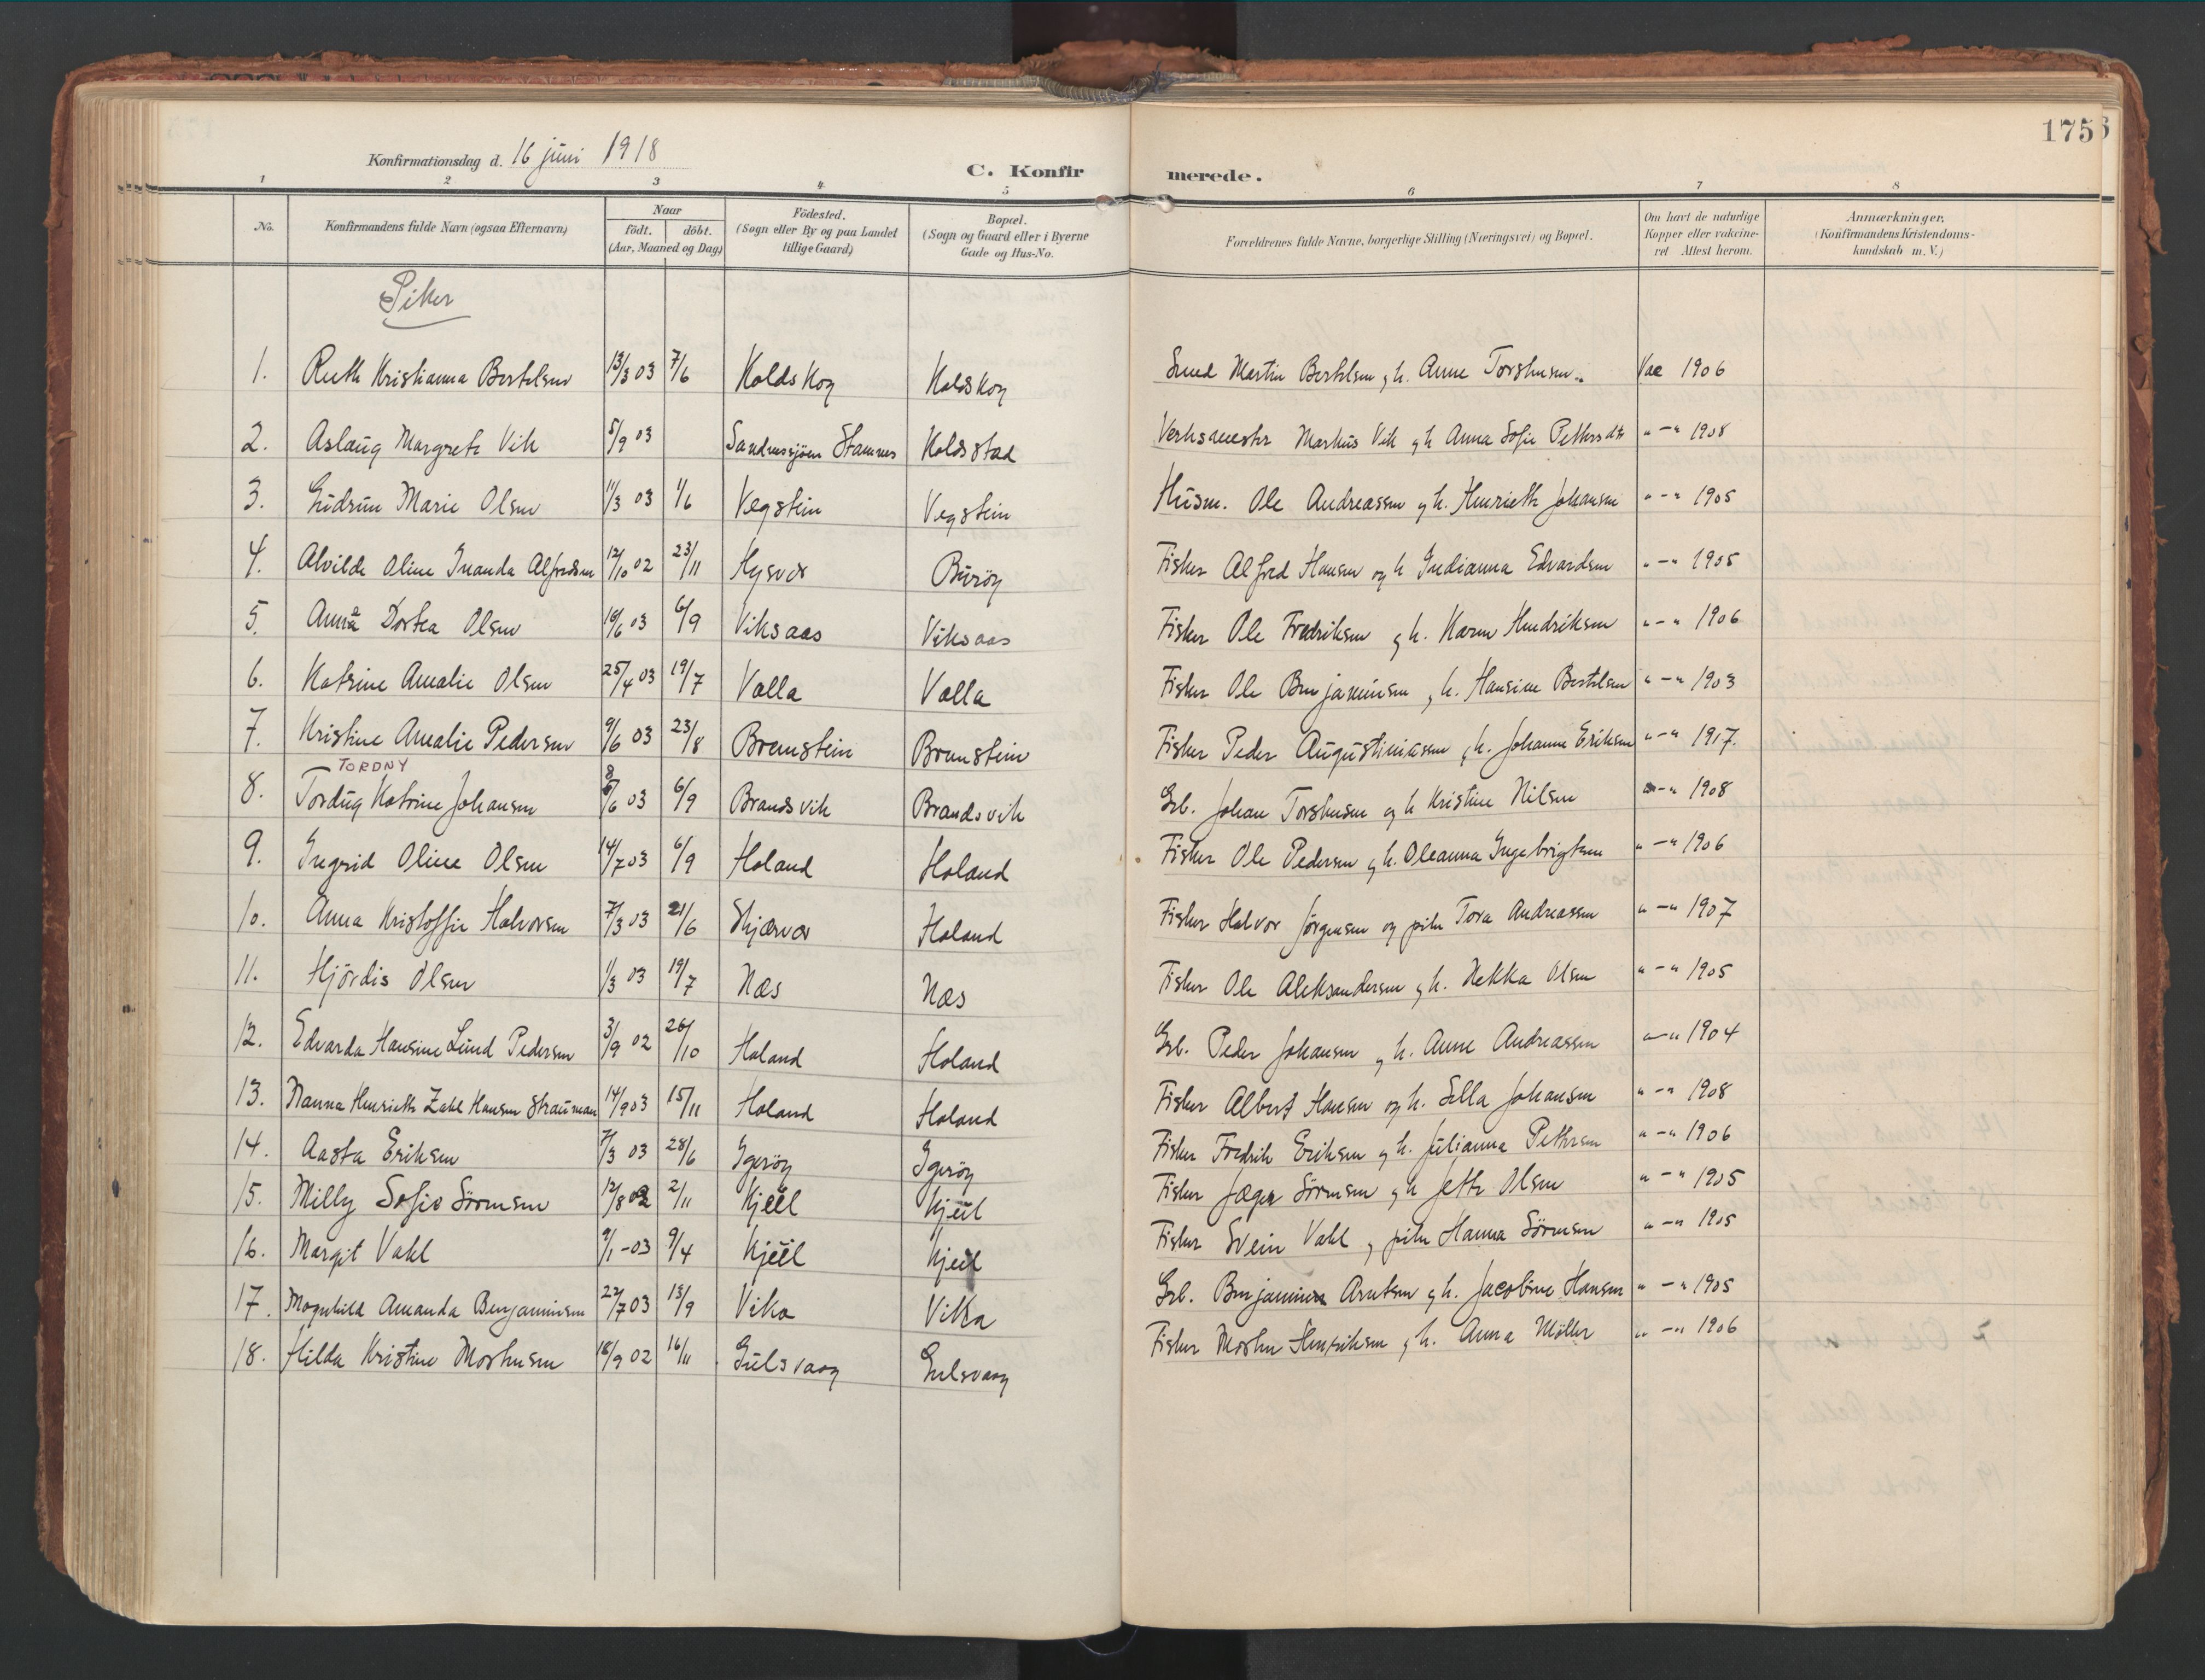 175
Konfirmationsdag d. 16 juni 1918
C. Konfirmerede.
1 2 3 4 5 6 7 8
No. Konfirmandens fulde Navn (ogsaa Efternavn) Naar födt. döbt. (Aar, Maaned og Dag) Födested. (Sogn eller By og paa Landet tillige Gaard) Bopæl. (Sogn og Gaard eller i Byerne Gade og Hus-No. Forældrenes fulde Navne, borgerlige Stilling (Næringsvei) og Bopæl. Om havt de naturlige Kopper eller vakcineret Attest herom. Anmærkninger. (Konfirmandens Kristendomskundskab m. V.)
Piker
1. Ruth Kristianna Bertelsen 13/3 03 7/6 Koldskog Koldskog Smed Martin Bertelsen og h. Anne Torstensen Vac 1906
2. Aslaug Margrete Vik 5/9 03 Sandnessjøen Stamnes Koldsstad Verksmester Markus Vik og h Anna Sofie Pettersdtr " - " 1908
3. Gudrun Marie Olsen 11/3 03 1/6 Vegstein Vegstein Husm. Ole Andreassen og h. Henriette Johansen " - " 1905
4. Alvilde Oline Inanda Alfredsen 12/10 02 23/11 Hysvær Burøy Fisker Alfred Hansen og h Indianna Edvardsen " - " 1905
5. Anna Dortea Olsen 16/6 03 6/9 Viksaas Viksaas Fisker Ole Fredriksen og h. Karen Hendriksen " - " 1906
6. Katrine Amalie Olsen 25/4 03 19/7 Valla Valla Fisker Ole Benjaminsen og h. Hansine Bertelsen " - " 1903
7. Kristine Amalie Pedersen 9/6 03 23/8 Bremstein Bremstein Fisker Peder Augustiniussen og h. Johanne Eriksen " - " 1917.
TORDNY
8. Tordug Katrine Johansen 8/6 03 6/9 Brandsvik Brandsvik Grb. Johan Torstensen og h Kristine Nilsen " - " 1908
9. Ingrid Oline Olsen 14/7 03 6/9 Holand Holand Fisker Ole Pedersen og h. Oleanna Ingebrigtsen " - " 1906
10. Anna Kristoffie Halvorsen 7/3 03 21/6 Skjærvær Holand Fisker Halvor Jørgensen og pike Tora Andreassen " - " 1907
11. Hjördis Olsen 1/3 03 19/7 Næs Næs Fisker Ole Aleksandersen og h. Rekka Olsen " - " 1905
12. Edvarda Hansine Lund Pedersen 3/9 02 26/10 Holand Holand Grb. Peder Johansen og h. Anne Andreassen " - " 1904
13. Nanna Henriette Zahl Hansen Strauman 14/9 03 15/11 Holand Holand Fisker Albert Hansen og h. Sella Johansen " - " 1908
14. Aasta Eriksen 7/3 03 28/6 Igerøy Igerøy Fisker Fredrik Eriksen og h. Julianna Pettersen " - " 1906
15. Milly Sofie Sörensen 12/8 02 2/11 Kjeel Kjeel Fisker Jæger Sörensen og h Jette Olsen " - " 1905
16. Margit Vahl 9/1 - 03 9/4 Kjeel Kjeel Fisker Svein Vahl og pike Hanna Sörensen " - " 1905
17. Magnhild Amanda Benjaminsen 22/7 03 13/9 Vika Vika Grb. Benjamin Arntsen og h. Jacobine Hansen " - " 1905
18. Hilda Kristine Mortensen 18/9 02 16/11 Gulsvaag Gulsvaag Fisker Morten Henriksen og h. Anna Møller " - " 1906